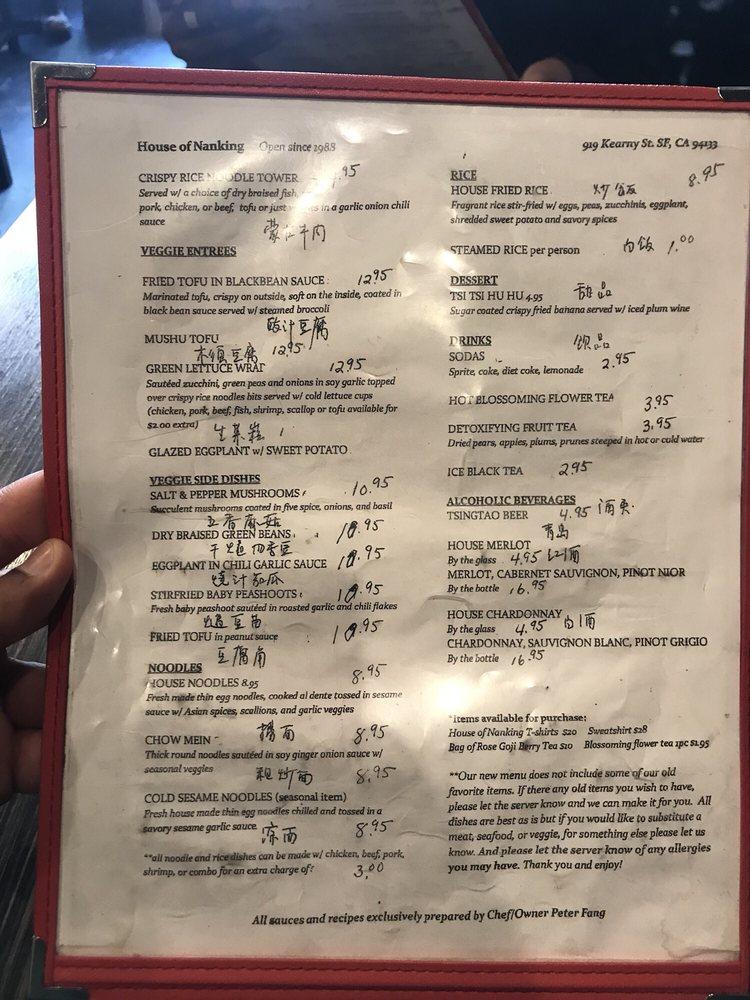 House of Nanking Open since 1988
919 Kearny St. SF, CA 94133
CRISPY RICE NOODLE TOWER .95
Served w/ a choice of dry braised fish,
pork, chicken, or beef, tofu or just in a garlic onion chili
sauce
蒙古牛肉
VEGGIE ENTREES
FRIED TOFU IN BLACKBEAN SAUCE 12.95
Marinated tofu, crispy on outside, soft on the inside, coated in
black bean sauce served w/ steamed broccoli
豉汁豆腐
MUSHU TOFU
木须豆腐 12.95
GREEN LETTUCE WRAP 12.95
Sautéed zucchini, green peas and onions in soy garlic topped
over crispy rice noodles bits served w/ cold lettuce cups
(chicken, pork, beef, fish, shrimp, scallop or tofu available for
$2.00 extra)
生菜
GLAZED EGGPLANT w/ SWEET POTATO
VEGGIE SIDE DISHES
SALT & PEPPER MUSHROOMS 10.95
Succulent mushrooms coated in five spice, onions, and basil
五香蘑菇
DRY BRAISED GREEN BEANS 10.95
干 四季豆
EGGPLANT IN CHILI GARLIC SAUCE 10.95
烧汁茄瓜
STIRFRIED BABY PEASHOOTS 10.95
Fresh baby peashoot sautéed in roasted garlic and chili flakes
豆苗
FRIED TOFU in peanut sauce 10.95
豆腐角
NOODLES 8.95
HOUSE NOODLES 8.95
Fresh made thin egg noodles, cooked al dente tossed in sesame
sauce w/ Asian spices, scallions, and garlic veggies
面
CHOW MEIN 8.95
Thick round noodles sautéed in soy ginger onion sauce w/
seasonal veggies
粗炒面 8.95
COLD SESAME NOODLES (seasonal item)
Fresh house made thin egg noodles chilled and tossed in a
savory sesame garlic sauce 凉面 8.95
**all noodle and rice dishes can be made w/ chicken, beef, pork,
shrimp, or combo for an extra charge of: 3.00
RICE
HOUSE FRIED RICE 炒饭 8.95
Fragrant rice stir-fried w/ eggs, peas, zucchinis, eggplant,
shredded sweet potato and savory spices
STEAMED RICE per person 白饭 1.00
DESSERT
TSI TSI HU HU 4.95 甜品
Sugar coated crispy fried banana served w/ iced plum wine
DRINKS 饮品
SODAS 2.95
Sprite, coke, diet coke, lemonade
HOT BLOSSOMING FLOWER TEA 3.95
DETOXIFYING FRUIT TEA 3.95
Dried pears, apples, plums, prunes steeped in hot or cold water
ICE BLACK TEA 2.95
ALCOHOLIC BEVERAGES
TSINGTAO BEER 4.95 酒
青岛
HOUSE MERLOT
By the glass 4.95 红酒
MERLOT, CABERNET SAUVIGNON, PINOT NIOR
By the bottle 16.95
HOUSE CHARDONNAY
By the glass 4.95 白酒
CHARDONNAY, SAUVIGNON BLANC, PINOT GRIGIO
By the bottle 16.95
*Items available for purchase:
House of Nanking T-shirts $20 Sweatshirt $28
Bag of Rose Goji Berry Tea $10 Blossoming flower tea 1pc $1.95
**Our new menu does not include some of our old
favorite items. If there any old items you wish to have,
please let the server know and we can make it for you. All
dishes are best as is but if you would like to substitute a
meat, seafood, or veggie, for something else please let us
know. And please let the server know of any allergies
you may have. Thank you and enjoy!
All sauces and recipes exclusively prepared by Chef/Owner Peter Fang